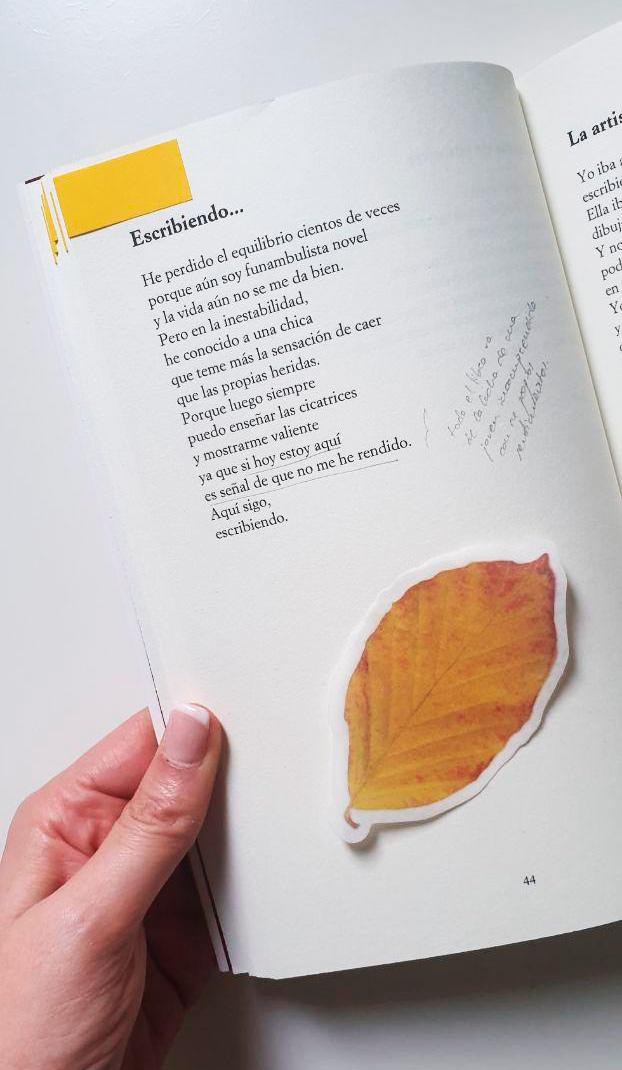 Escribiendo...
He perdido el equilibrio cientos de veces
porque aún soy funambulista novel
y la vida aún no se me da bien.
Pero en la inestabilidad,
he conocido a una chica
que teme más la sensación de caer
que las propias heridas.
Porque luego siempre
puedo enseñar las cicatrices
y mostrarme valiente
ya que si hoy estoy aquí
es señal de que no me he rendido.
Aquí sigo,
escribiendo.
todo el libro va
de una
joven incomprendida
con
44
La artis
Yo iba a
escribie
Ella ib
dibuj
Y no
pod
en
Yo
y